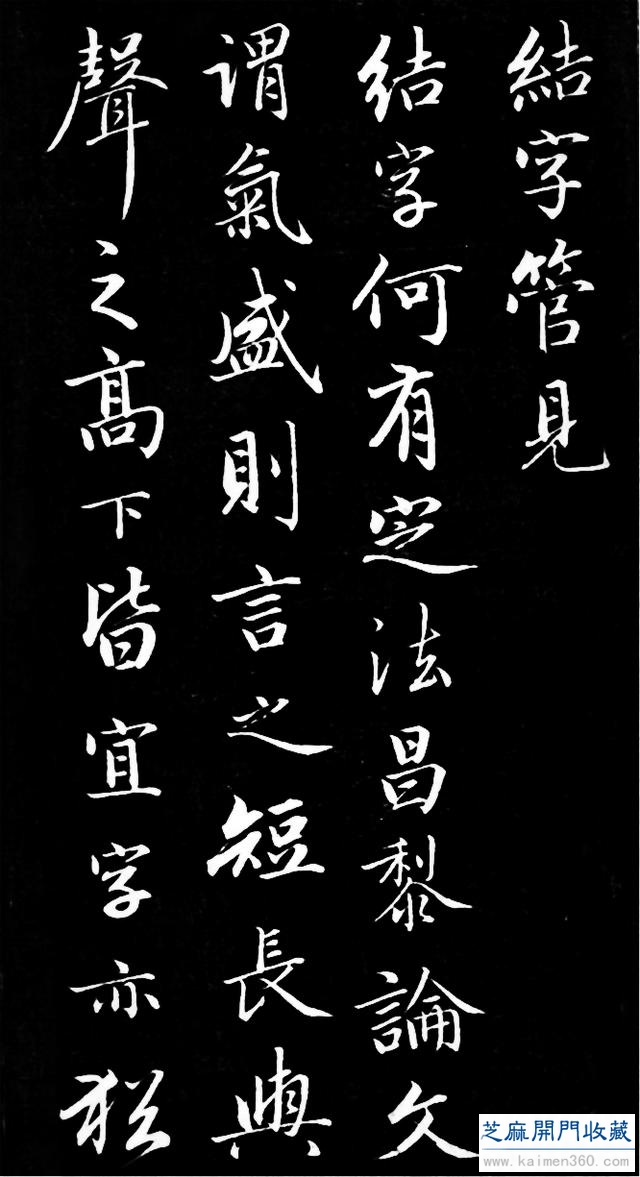 結字管見
結字何有定法昌黎論文
謂氣盛則言之短長與
聲之高下皆宜字亦猶
芝麻開門收藏
www.kaimen360.com